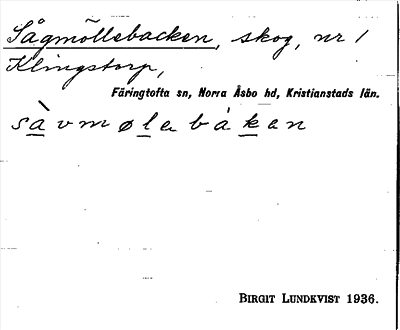 Sågmöllebacken, skog, nr 1
Klingstorp,
Färingtofta sn, Norra Åsbo hd, Kristianstads län.
sàvmøle bákan
BIRGIT LUNDKVIST 1936.